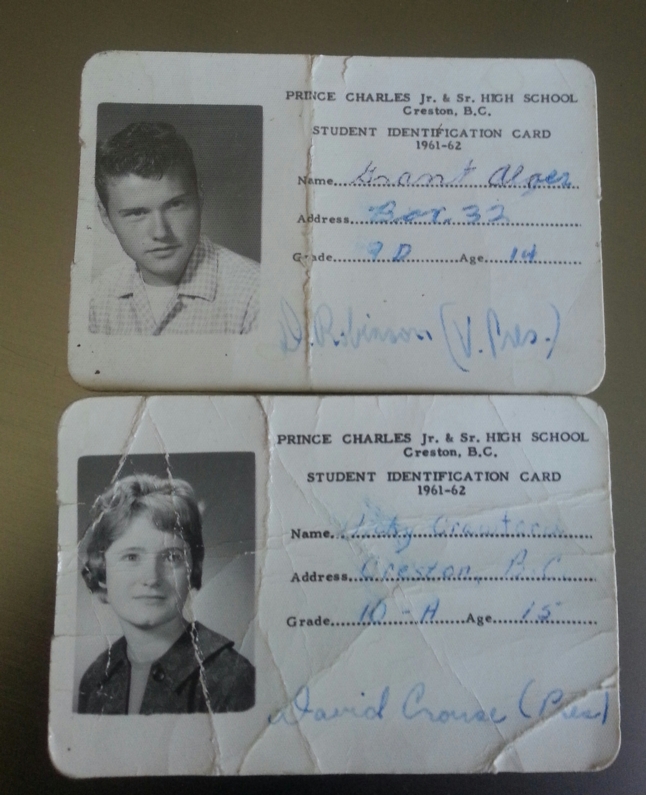 PRINCE CHARLES Jr. & Sr. HIGH SCHOOL
Creston, B.C.
STUDENT IDENTIFICATION CARD
1961-62
Name Grant Alger
Address Box 32
Grade 9 D Age 14
D. Robinson (V. Pres.)
PRINCE CHARLES Jr. & Sr. HIGH SCHOOL
Creston, B.C.
STUDENT IDENTIFICATION CARD
1961-62
Name
Address Creston, B.C.
Grade 10 - A Age 15
David Crouse (Pres)